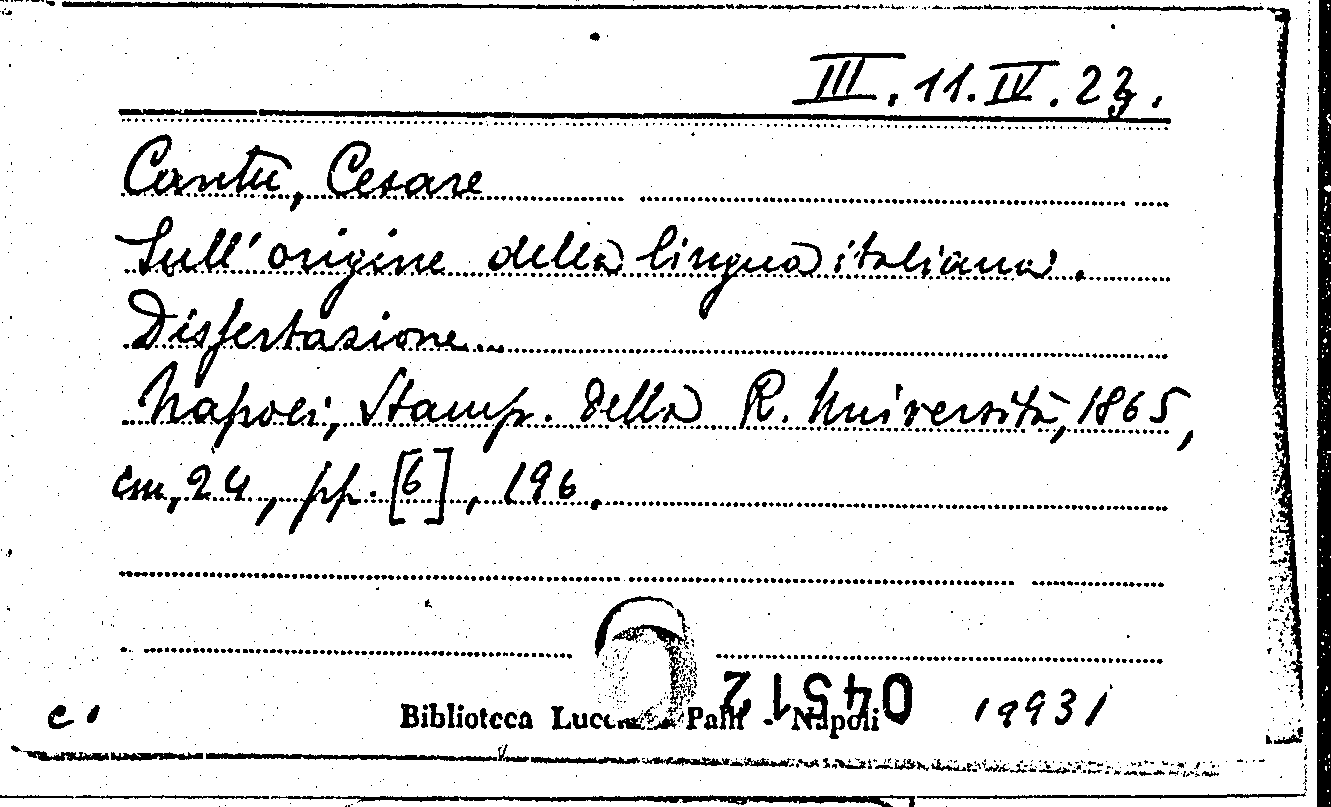 III. 11. IV. 23.
Cantù, Cesare
Sull'origine della lingua italiana.
Dissertazione...
Napoli, Stamp. della R. Università, 1865,
cm, 24, pp. [6], 196.
04512
c. Biblioteca Palli - Napoli 19931